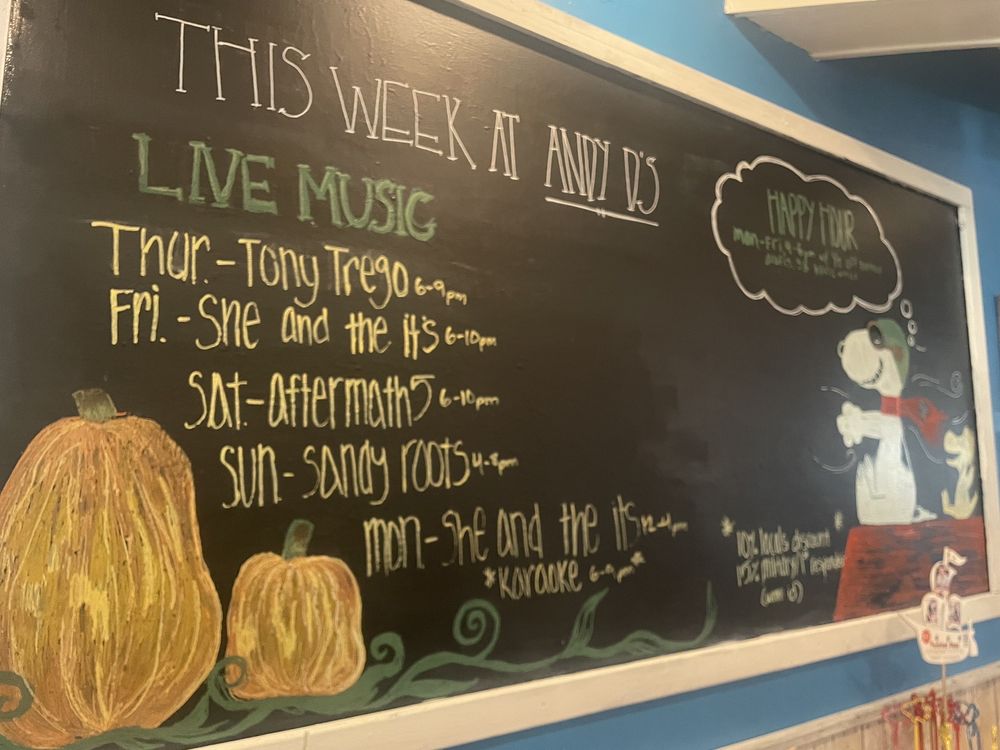 THIS WEEK AT ANDY D'S
LIVE MUSIC
Thur.-Tony Trego 6-9pm
Fri.-She and the it's 6-10pm
Sat-aftermath5 6-10pm
Sun-sandy roots 4-8pm
mon-She and the its
*Karaoke 6-9pm*
HAPPY HOUR
mon-Fri
*10% locals discount*
15% military/1st responder